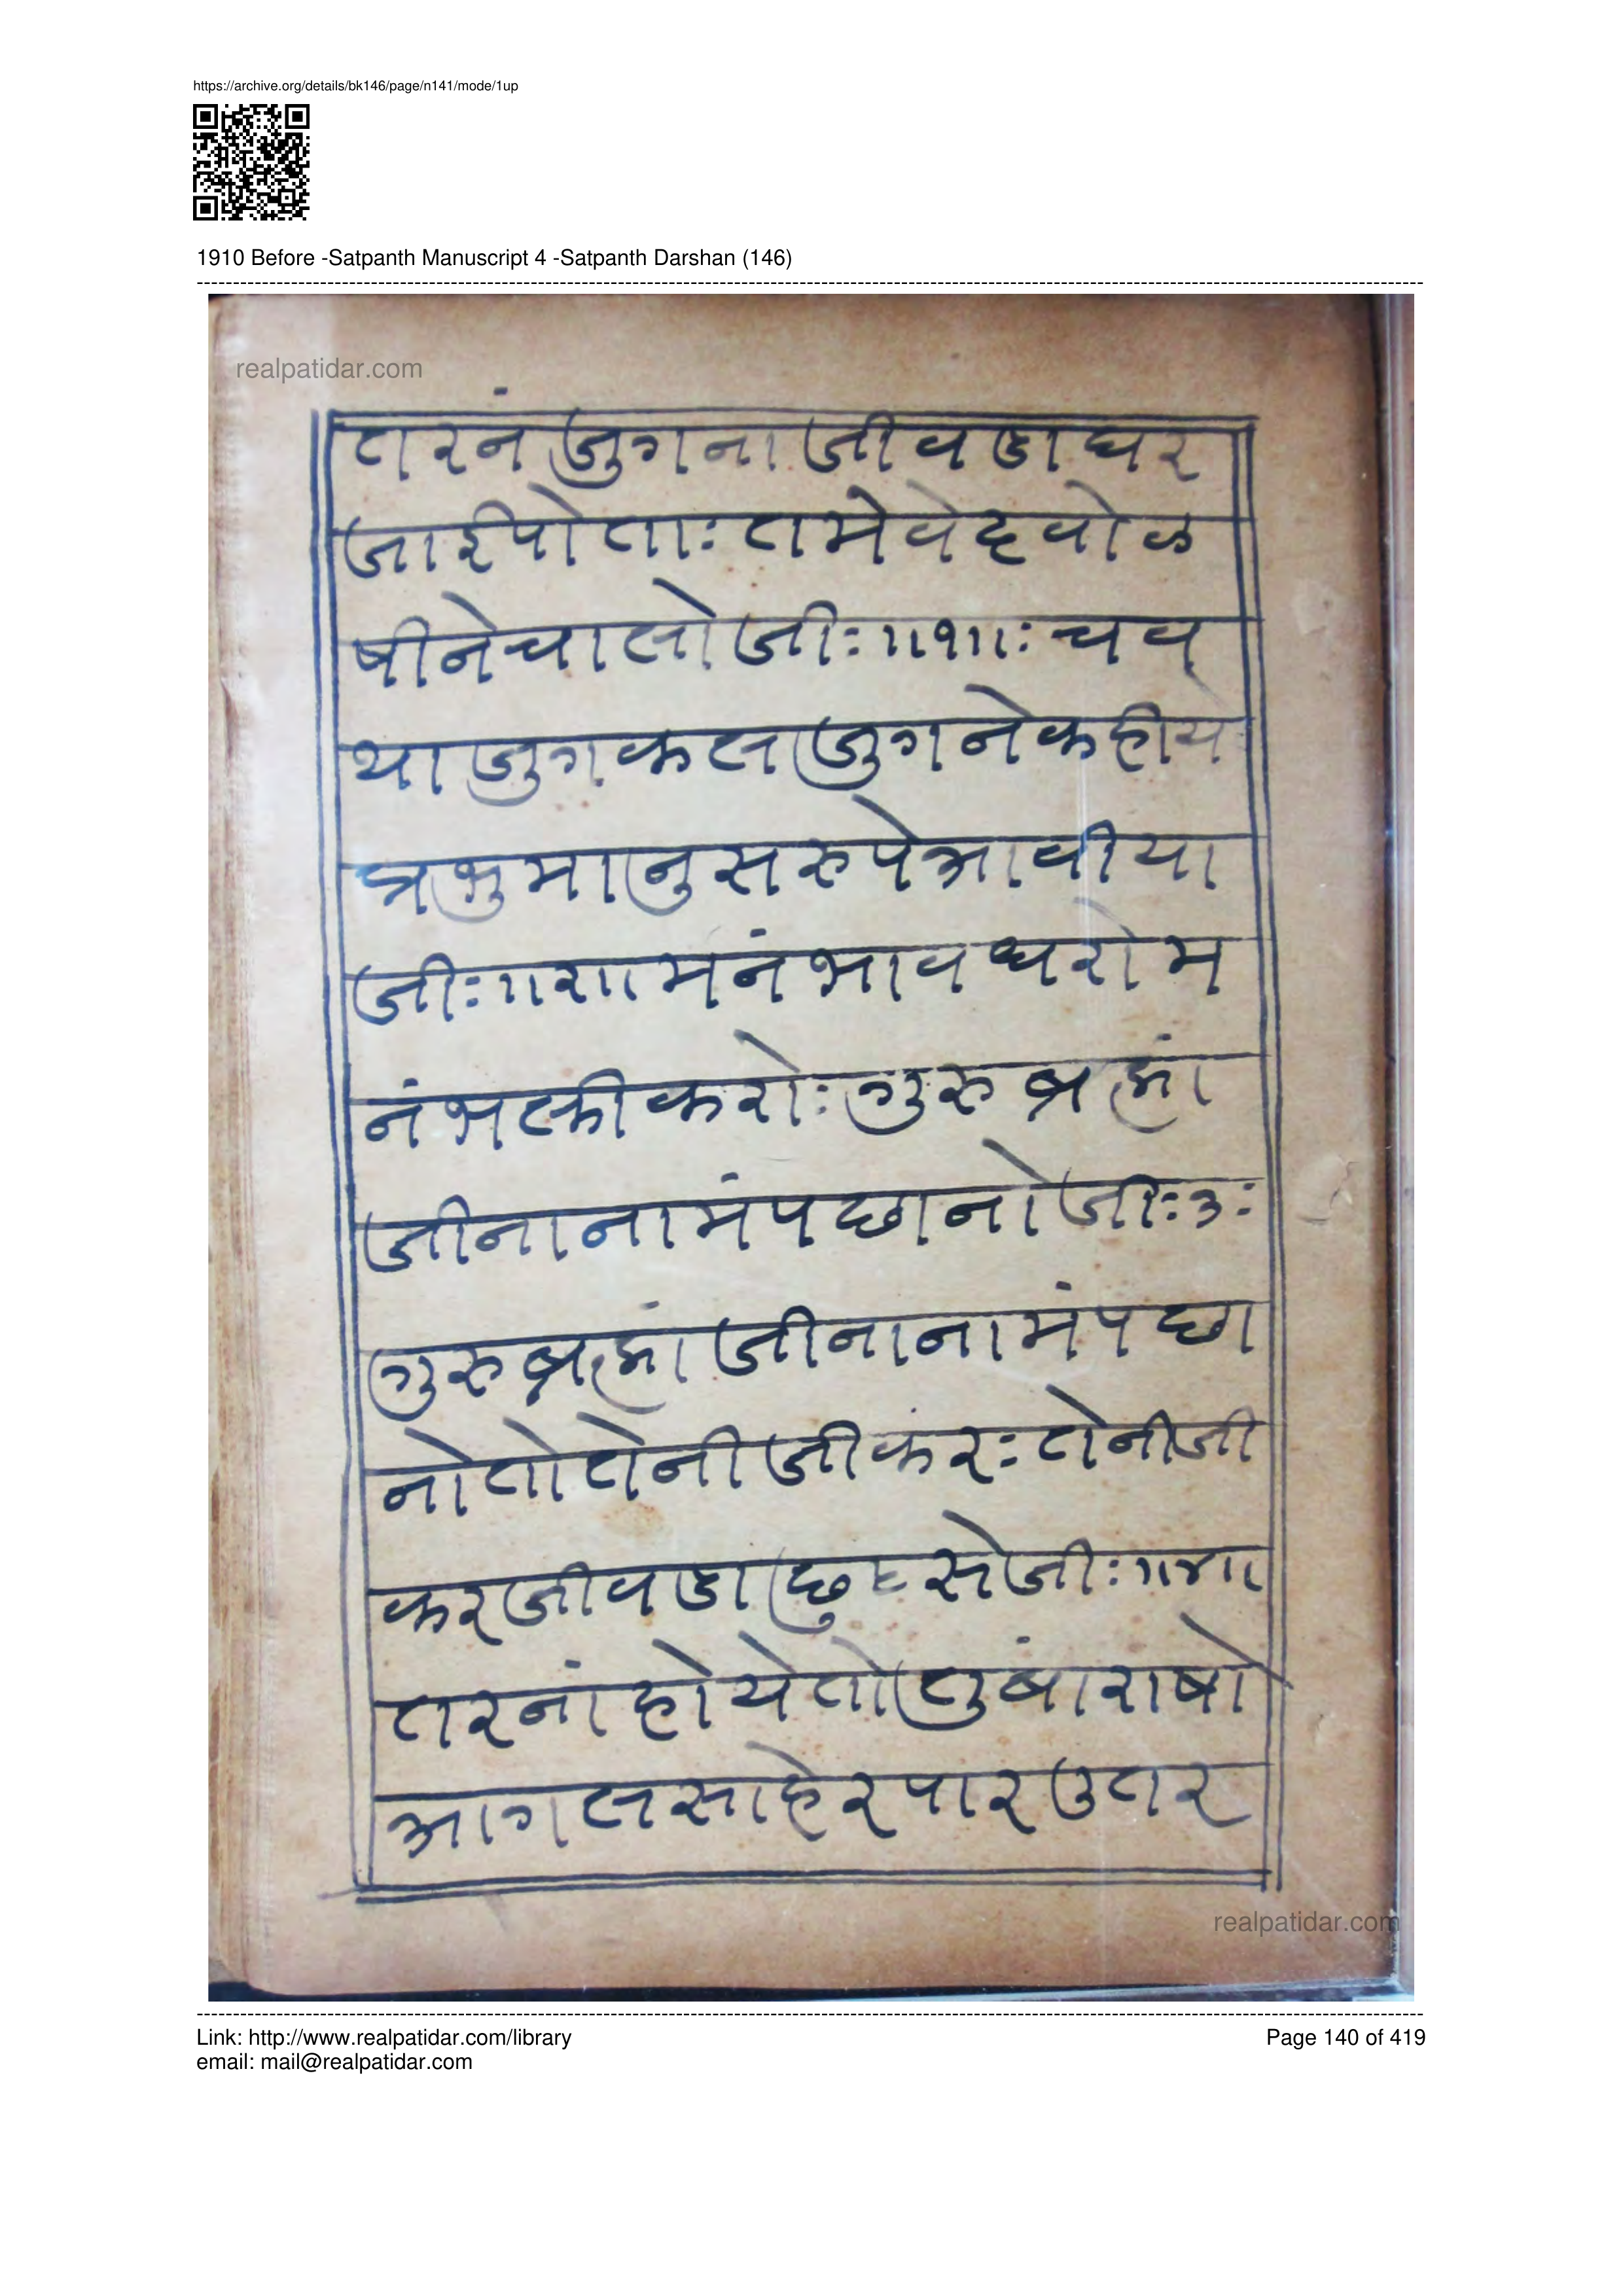 https://archive.org/details/bk146/page/n141/mode/1up
1910 Before -Satpanth Manuscript 4 -Satpanth Darshan (146)
realpatidar.com
तरनं जुगना जीवडा घर
जाई पोता: तमे वेद वोळ
षीने चालो जी: ॥१॥: चव
था जुग कल जुगने कहीये
प्रभु मानुस रुपे आवीया
जी: ॥२॥ मनं भाव धरो म
नं भक्ती करो: गुरु ब्रह्मां
जीना नामं पछानो जी: ३:
गुरु ब्रह्मां जीना नामं पछा
नो तो तेनी जीकंर: तेनी जी
कर जीवडा छुटसे जी: ॥४॥
तरनां होये तो तुबां राषो
आगल साहेर पार उतर
realpatidar.com
Link: http://www.realpatidar.com/library
email: mail@realpatidar.com
Page 140 of 419